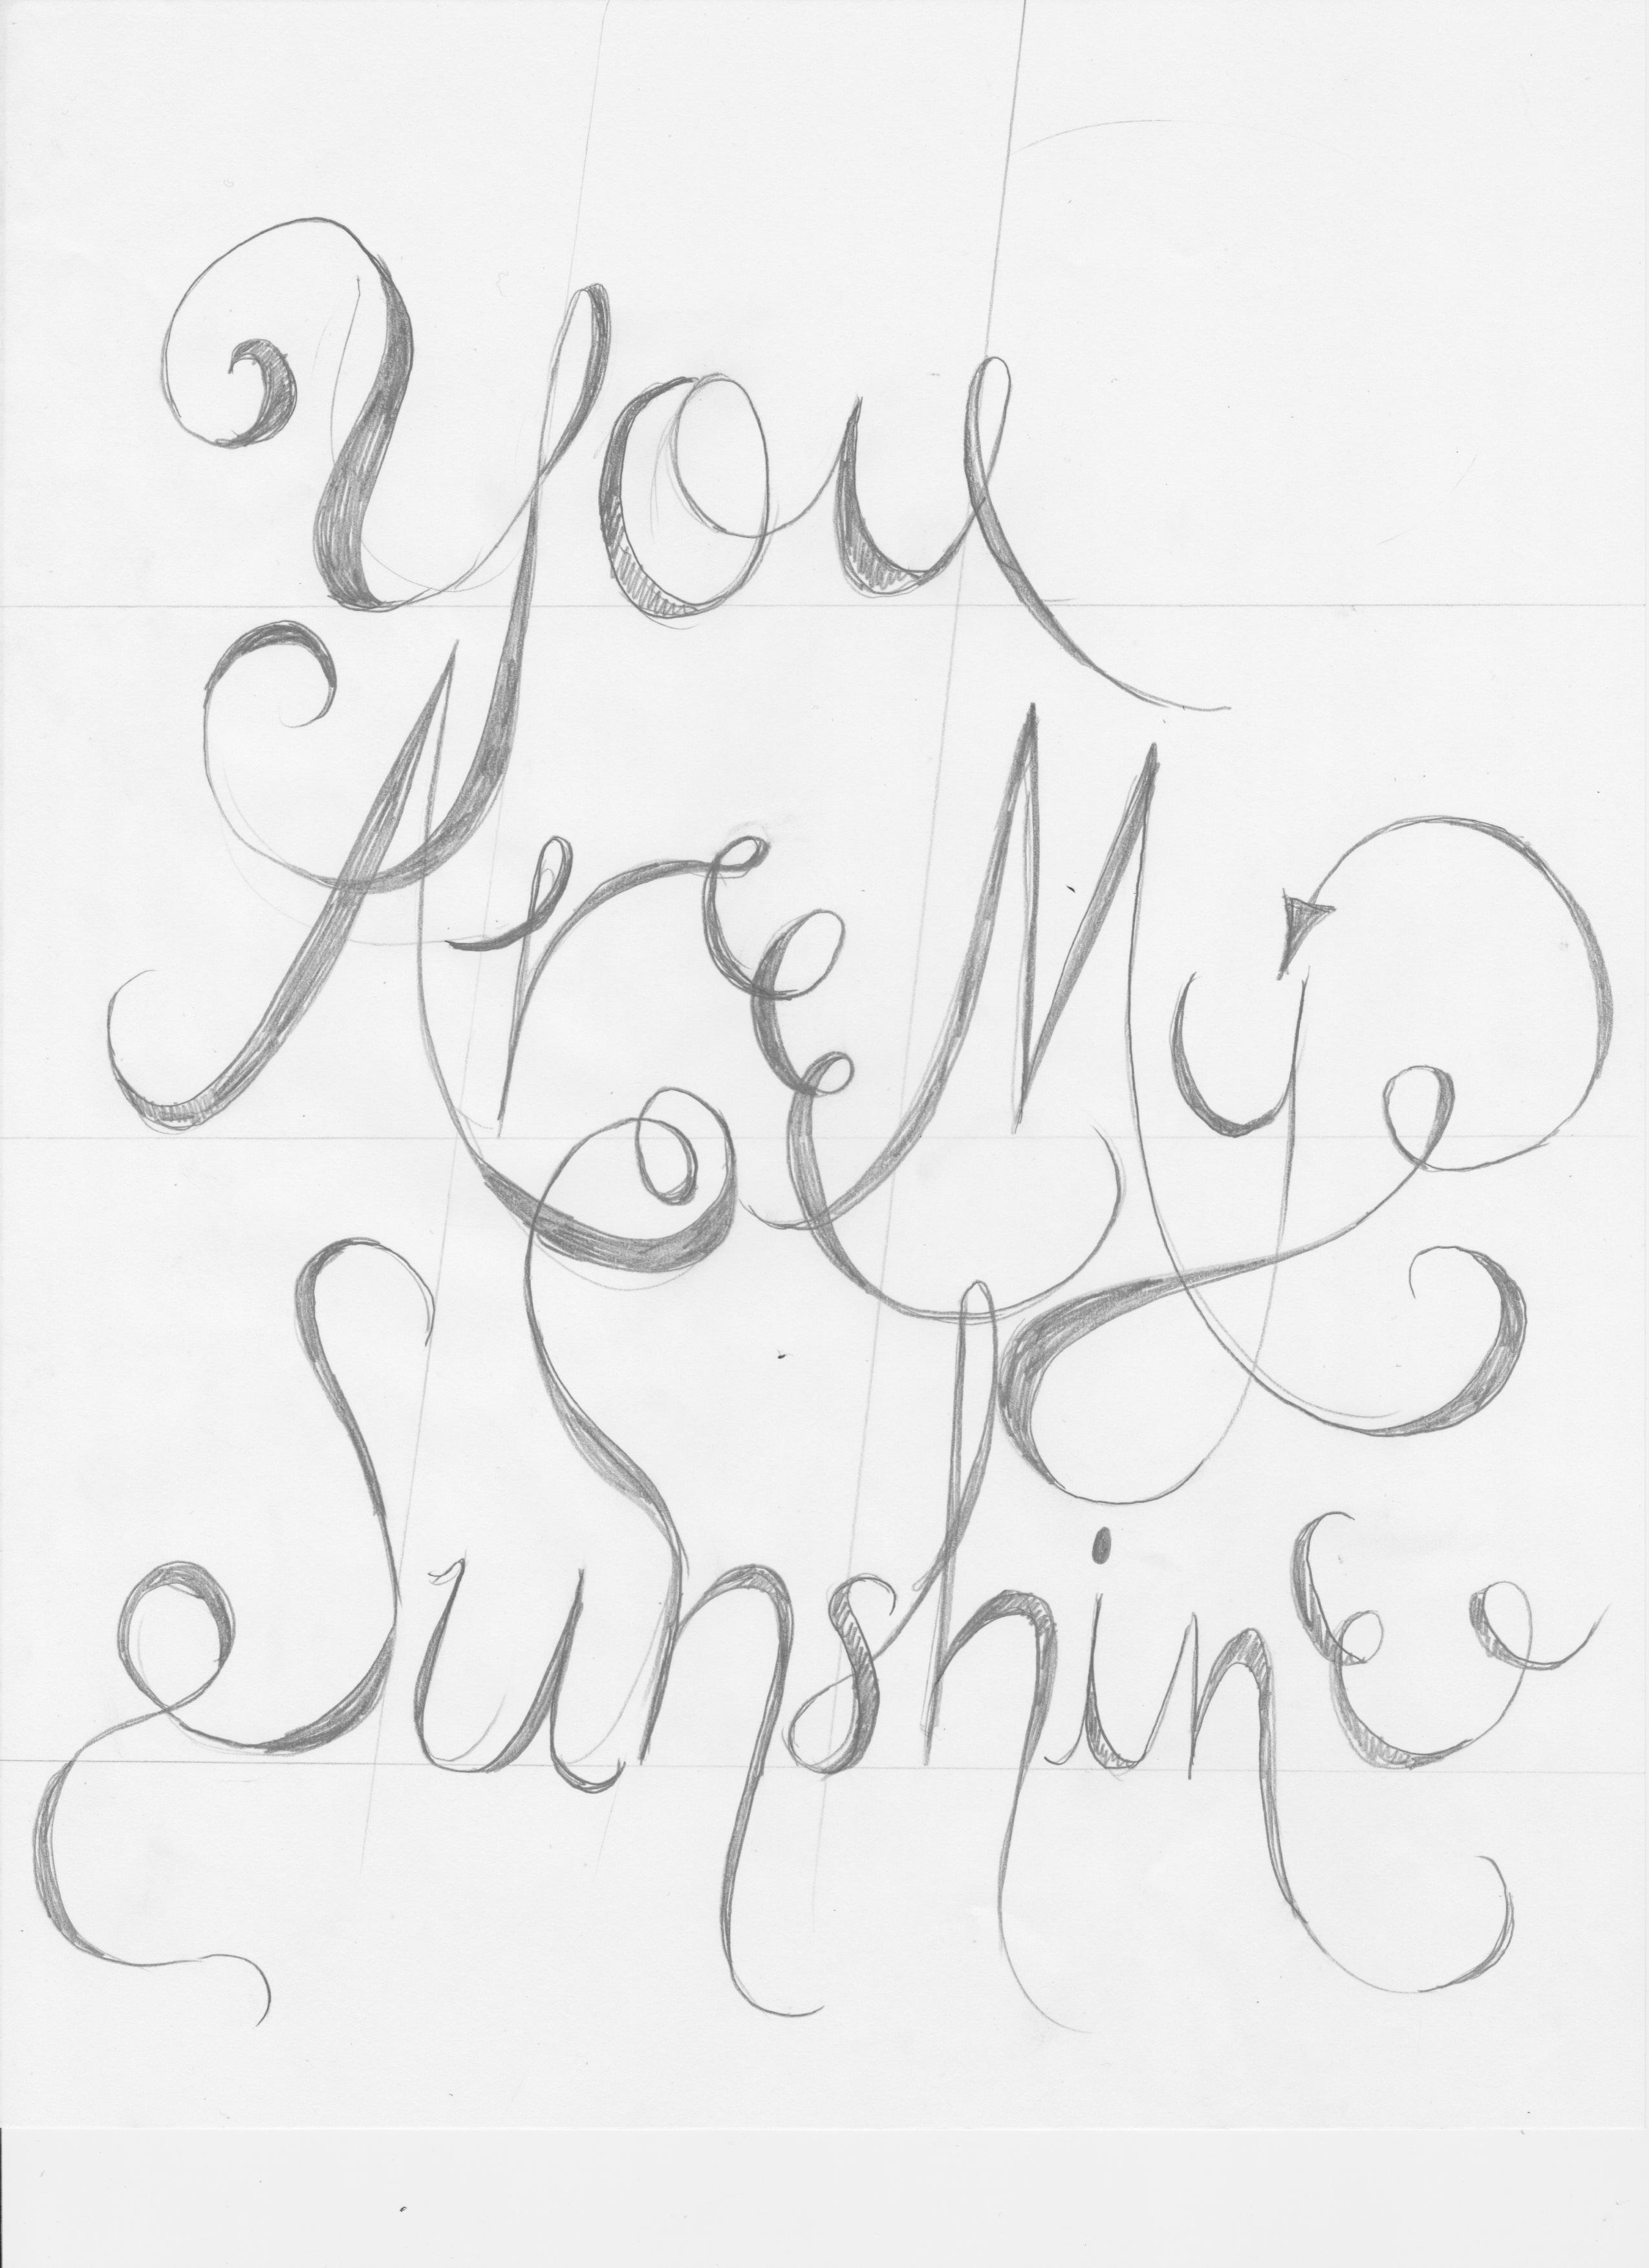 You
Are My
Sunshine